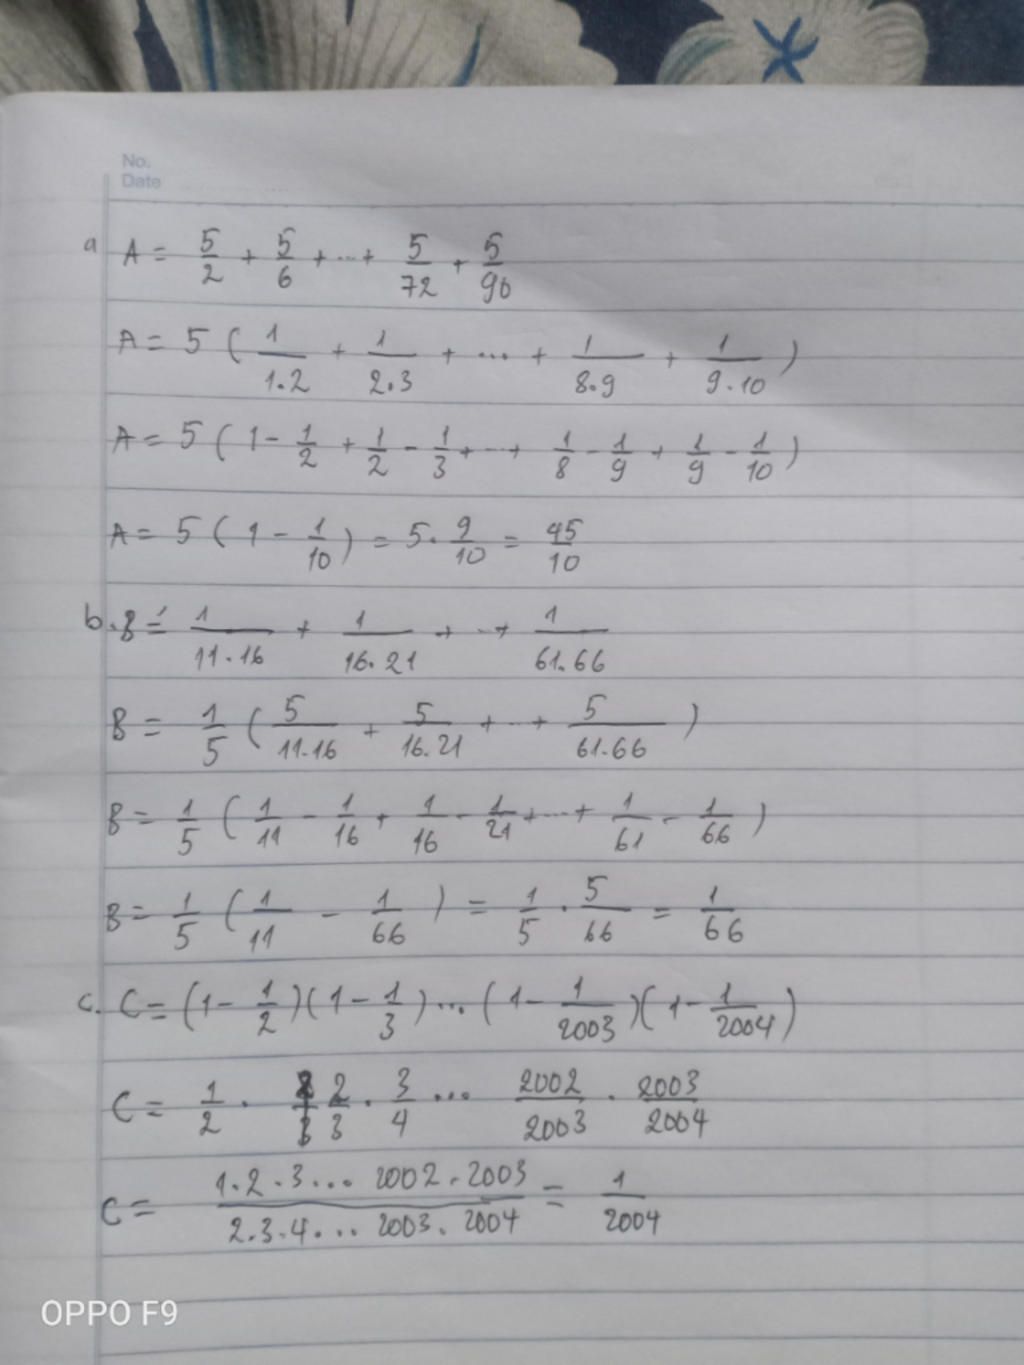 No.
Date
a A = 5/2 + 5/6 + ... + 5/72 + 5/90
A = 5 ( 1/1.2 + 1/2.3 + ... + 1/8.9 + 1/9.10 )
A = 5 ( 1 - 1/2 + 1/2 - 1/3 + ... + 1/8 - 1/9 + 1/9 - 1/10 )
A = 5 ( 1 - 1/10 ) = 5 . 9/10 = 45/10
b. B = 1/11.16 + 1/16.21 + ... + 1/61.66
B = 1/5 ( 5/11.16 + 5/16.21 + ... + 5/61.66 )
B = 1/5 ( 1/11 - 1/16 + 1/16 - 1/21 + ... + 1/61 - 1/66 )
B = 1/5 ( 1/11 - 1/66 ) = 1/5 . 5/66 = 1/66
c. C = (1 - 1/2)(1 - 1/3) ... (1 - 1/2003)(1 - 1/2004)
C = 1/2 . 2/3 . 3/4 ... 2002/2003 . 2003/2004
C = 1.2.3... 2002.2003/2.3.4... 2003.2004 = 1/2004
OPPO F9